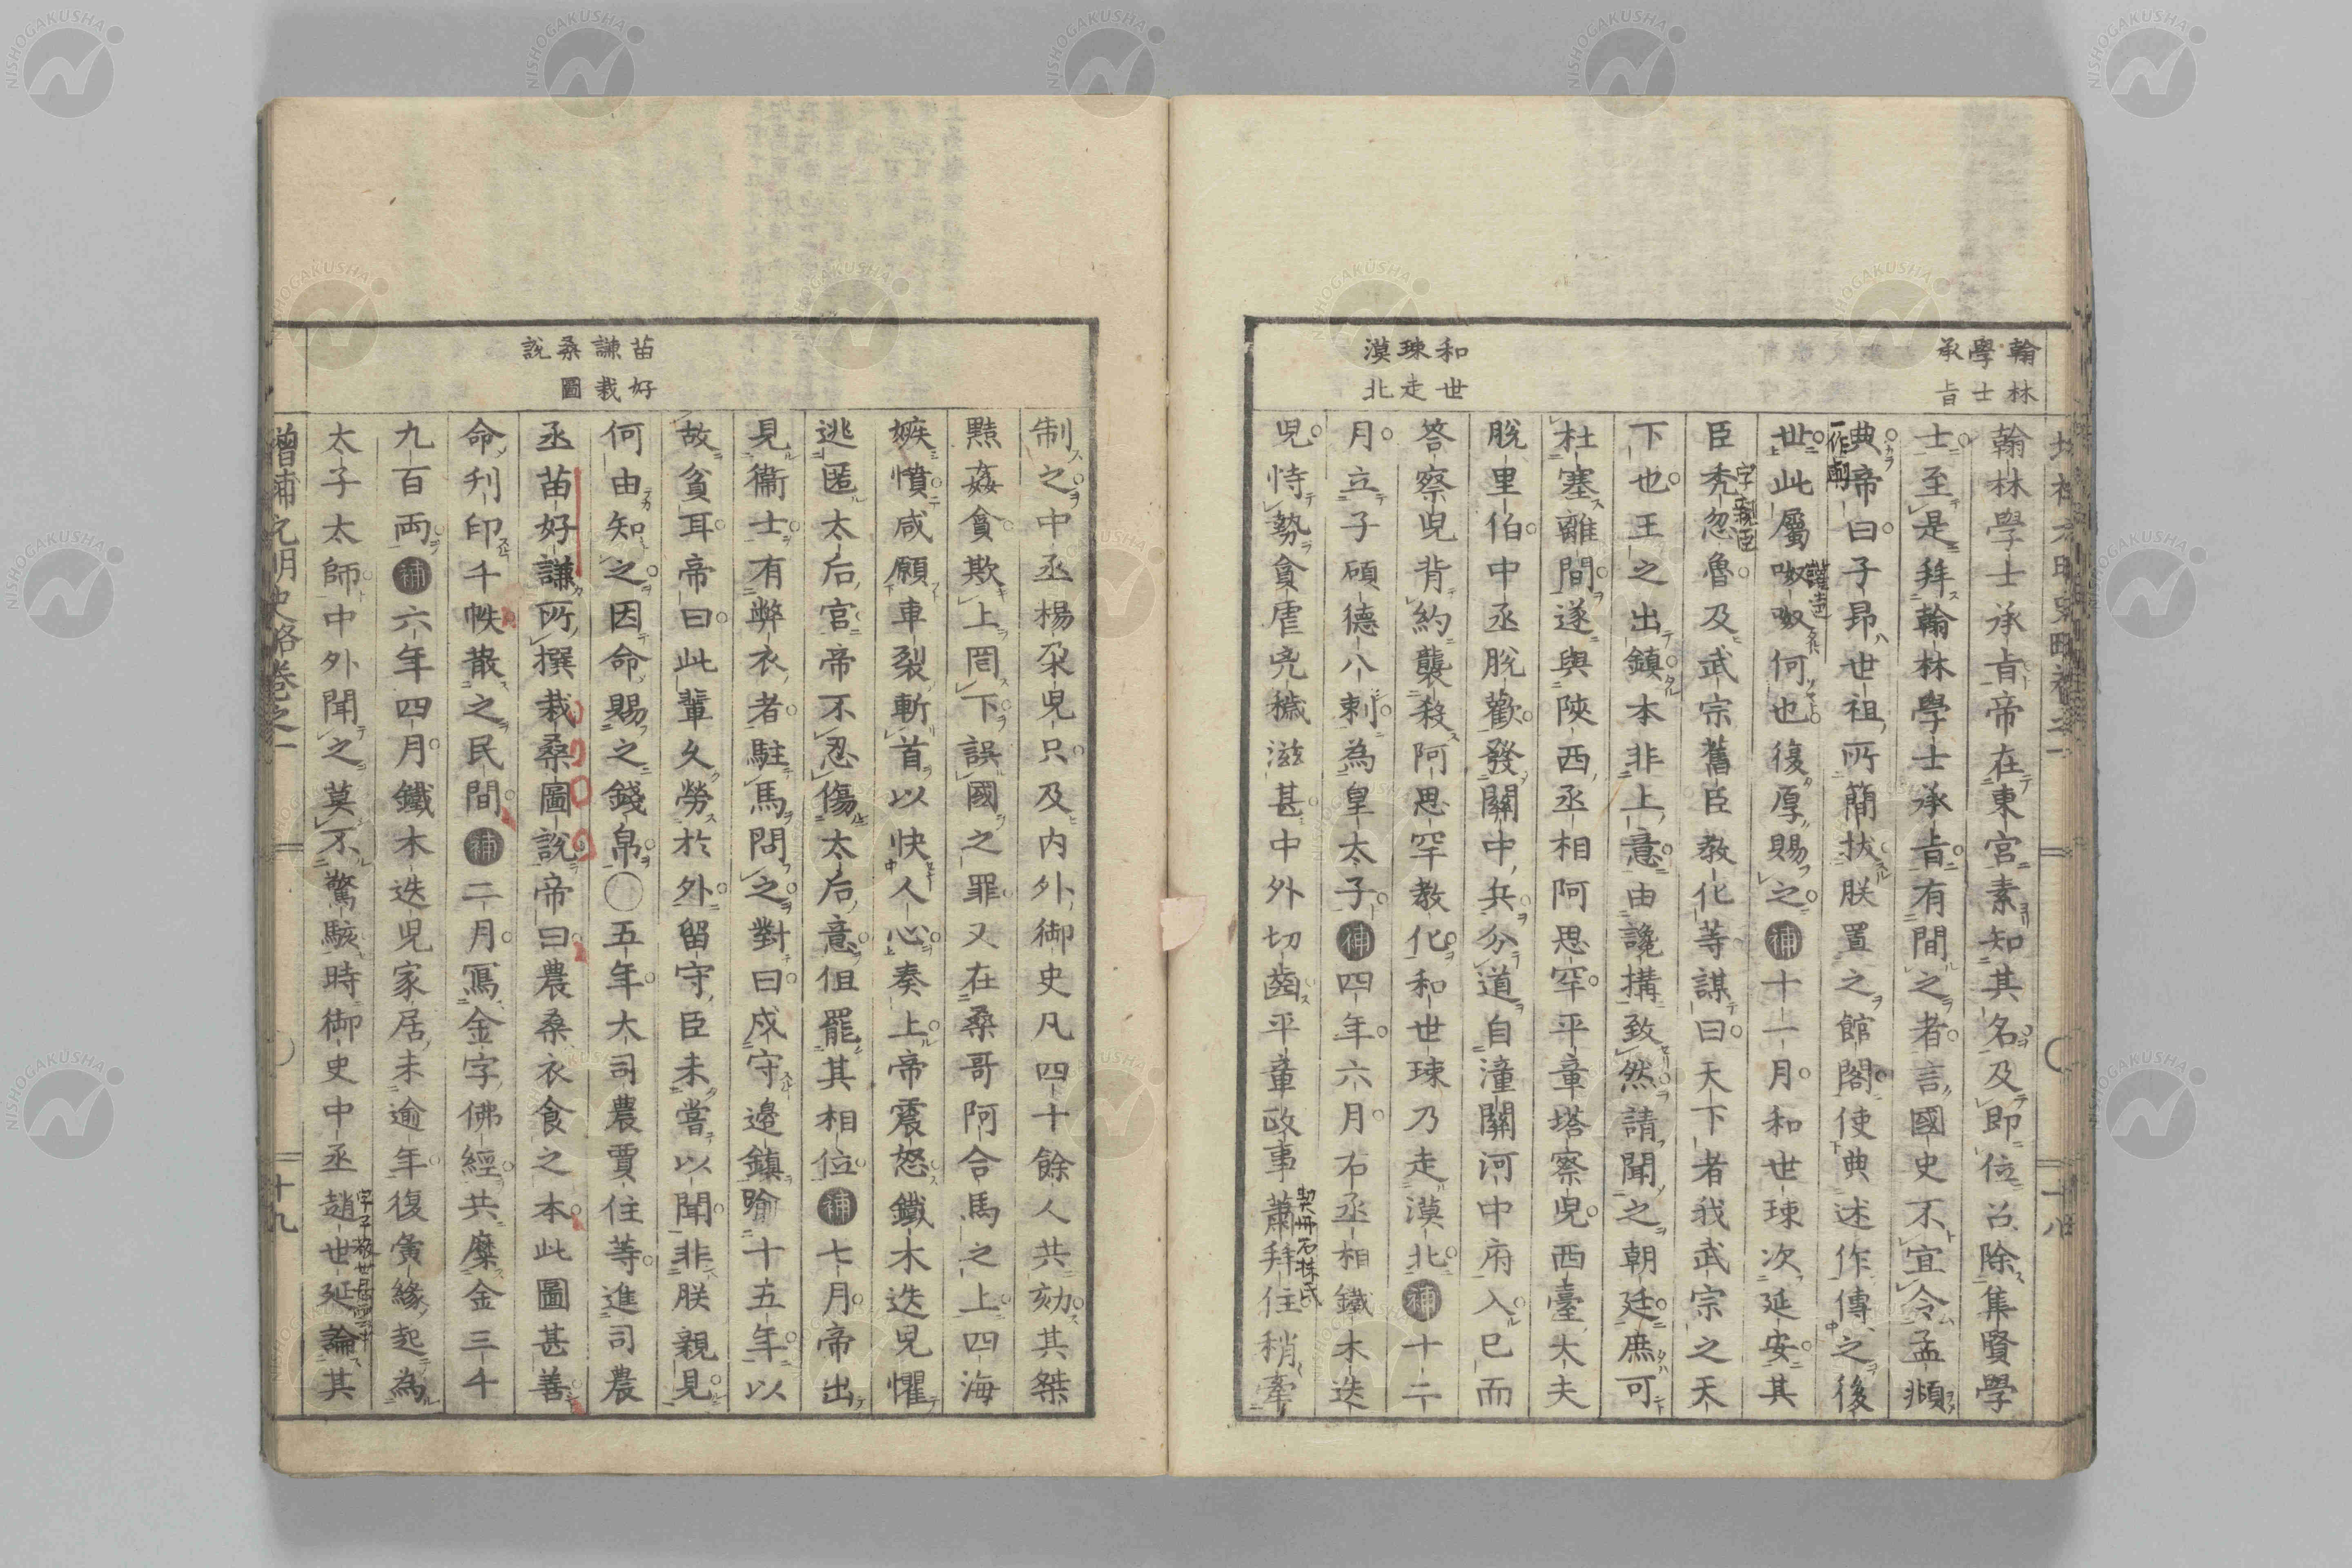 翰林學士承旨
和世㻋走漠北
增補元明史略卷之一
十八
翰林學士承旨帝在東宮素知其名及即位召除集賢學
士至是拜翰林學士承旨有間之者言國史不宜令孟頫
典帝曰子昂世祖所簡拔朕置之館閣使典述作傳之後
世此屬呶呶何也復厚賜之補十一月和世㻋次延安其
臣禿忽魯及武宗舊臣教化等謀曰天下者我武宗之天
下也王之出鎮本非上意由讒搆致然請聞之朝廷庶可
杜塞離間遂與陝西丞相阿思罕平章塔察兒西臺大夫
脫里伯中丞脫歡發關中兵分道自潼關河中府入已而
答察兒背約襲殺阿思罕教化和世㻋乃走漠北補十二
月立子碩德八剌為皇太子補四年六月右丞相鐵木迭
兒恃勢貪虐兇穢滋甚中外切齒平章政事蕭拜住稍牽
苗好謙栽桑圖說
制之中丞楊朶兒只及内外御史凡四十餘人共劾其桀
黠姦貪欺上罔下誤國之罪又在桑哥阿合馬之上四海
嫉憤咸願車裂斬首以快人心奏上帝震怒鐵木迭兒懼
逃匿太后宮帝不忍傷太后意但罷其相位補七月帝出
見衞士有弊衣者駐馬問之對曰戍守邊鎮踰十五年以
故貧耳帝曰此輩久勞於外留守臣未嘗以聞非朕親見
何由知之因命賜之錢帛○五年大司農賈住等進司農
丞苗好謙所撰栽桑圖說帝曰農桑衣食之本此圖甚善
命刋印千帙散之民間補二月寫金字佛經共糜金三千
九百兩補六年四月鐵木迭兒家居未逾年復夤緣起為
太子太師中外聞之莫不驚駭時御史中丞趙世延論其
增補元明史略卷之一
十九